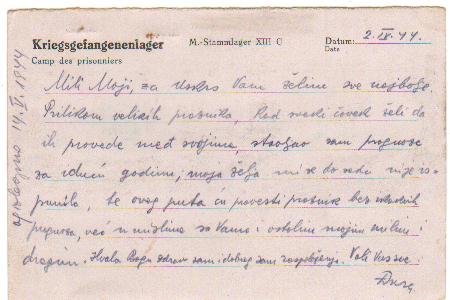 Kriegsgefangenenlager
Camp des prisonniers
M.-Stammlager XIII C
Datum: 2. IV. 44.
Date
Mili Moji, za Uskrs Vam želim sve najbolje.
Prilikom velikih praznika, kad svaki čovek želi da
ih provede među svojima, stvarao sam prognoze
za iduću godinu, moja želja mi se do sada nije is-
punila, te ovog puta ću provesti praznik bez ikakvih
prognoza, već u mislima sa Vama i ostalim mojim milim i
dragim. Hvala Bogu zdrav sam i dobrog sam raspoloženja. Voli Vas sve
odgovoreno 14. V. 1944